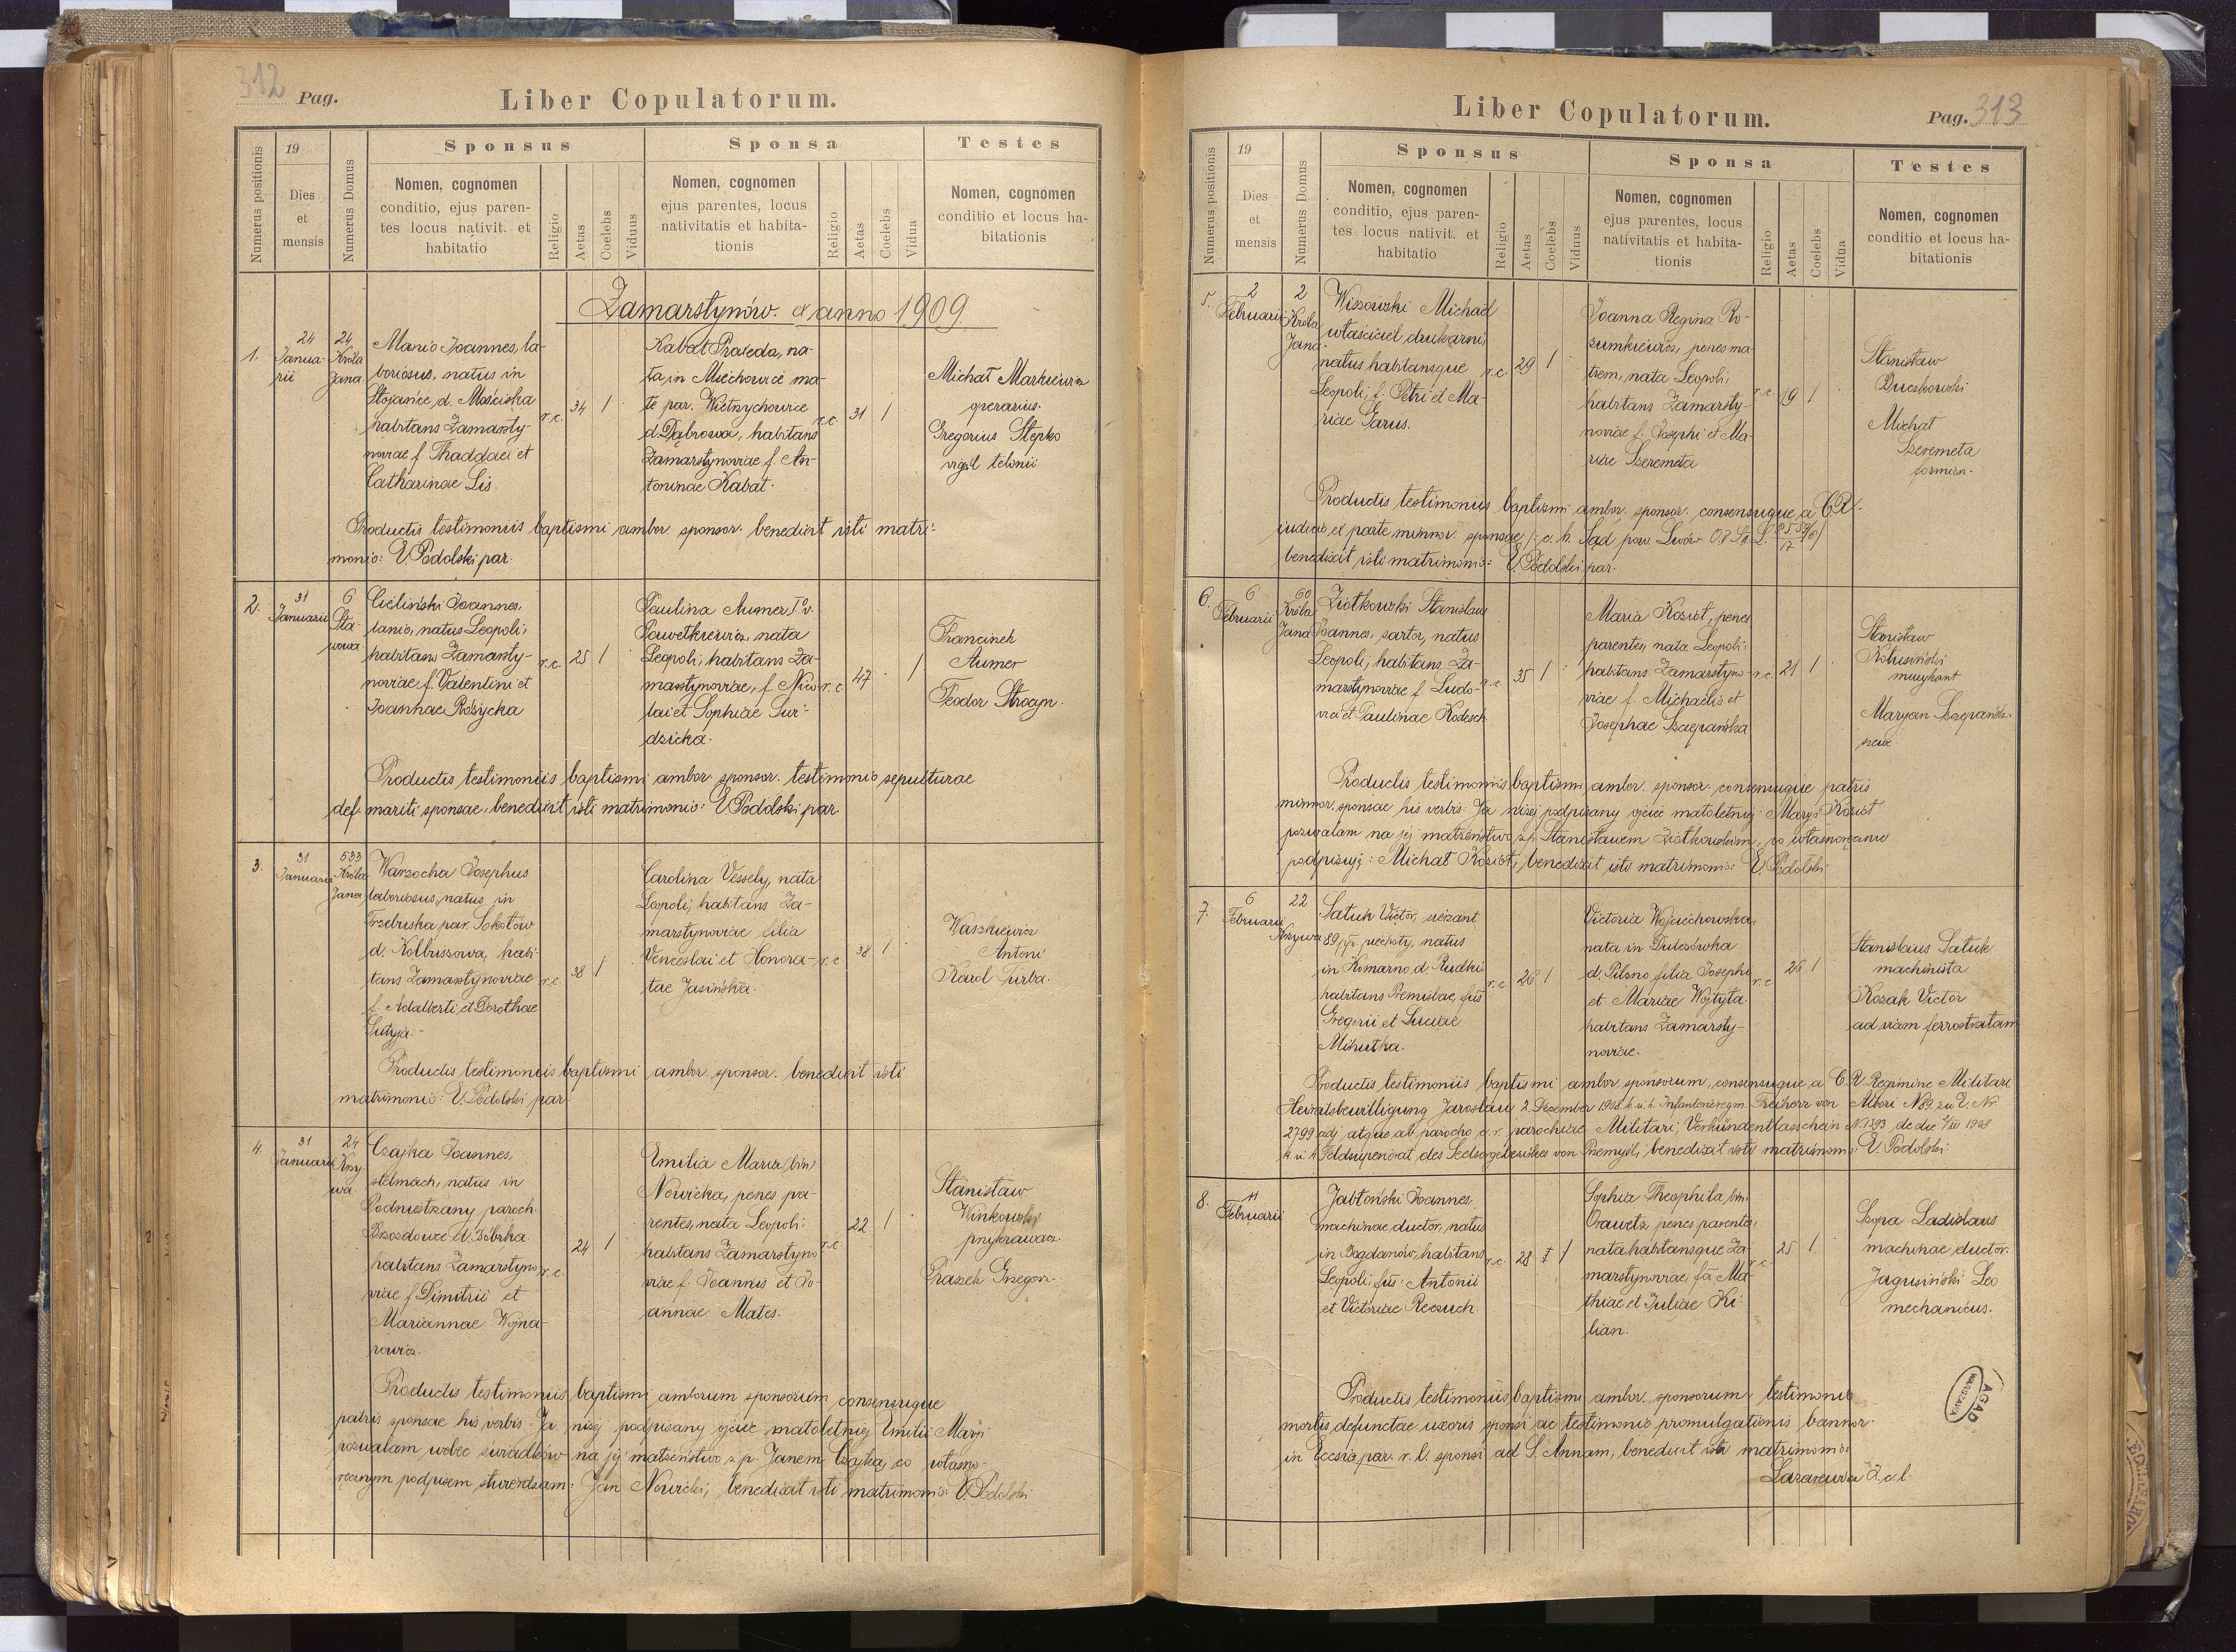 312 Pag.
Liber Copulatorum.
Numerus positionis
19
Dies
et
mensis
Numerus Domus
Sponsus
Nomen, cognomen
conditio, ejus paren-
tes locus nativit. et
habitatio
Religio
Aetas
Coelebs
Viduus
Sponsa
Nomen, cognomen
ejus parentes, locus
nativitatis et habita-
tionis
Religio
Aetas
Coelebs
Vidua
Testes
Nomen, cognomen
conditio et locus ha-
bitationis
Zamarstynów. anno 1909
1.
24
Janua-
rii
24
Króla
Jana
Manio Joannes, la-
boriosus, natus in
Stojańce, d. Mościska
habitans Zamarsty-
noviae f. Thaddaei et
Catharinae Lis.
r.c.
34
1
Kabat Praxeda, na-
ta in Miechowice ma-
łe par. Wietrzychowice
d. Dąbrowa, habitans
Zamarstynoviae f. An-
toninae Kabat.
r.c.
31
1
Michał Markiewicz
operarius.
Gregorius Stepko
vigil telonii
Productis testimoniis baptismi ambor. sponsor. benedixit isti matri-
monio: V. Podolski par.
2.
31
Januarii
6
Sta-
wowa
Cieliński Joannes,
lanio, natus Leopoli,
habitans Zamarsty-
noviae, f. Valentini et
Joannae Rożycka
r.c.
25
1
Paulina Aumer 1º v.
Pawełkiewicz, nata
Leopoli, habitans Za-
marstynoviae, f. Nico-
lai et Sophiae Sur-
dzicka.
r.c.
47
1
Francisek
Aumer
Teodor Strocyn.
Productis testimoniis baptismi ambor. sponsor. testimonio sepulturae
def. mariti sponsae, benedixit isti matrimonio: V. Podolski par.
3.
31
Januarii
533
Króla
Jana
Warzocha Josephus
laboriosus, natus in
Trzebuska par. Sokołów
d. Kolbuszowa, habi-
tans Zamarstynoviae
f. Adalberti, et Dorothae
Sutyja.-
r.c.
38
1
Carolina Vessely, nata
Leopoli, habitans Za-
marstynoviae filia
Venceslai et Honora-
tae Jasińska.
r.c.
38
1
Waszkiewicz
Antoni
Karol Turba.
Productis testimoniis baptismi ambor. sponsor. benedixit isti
matrimonio: V. Podolski par.
4.
31
Januarii
24
Krzy
wa
Czajka Joannes,
stelmach, natus in
Podniestrzany paroch.
Brzozdowce d. Bóbrka.
habitans Zamarstyno-
viae f. Dimitrii et
Mariannae Wojna-
rowicz.
r.c.
24
1
Emilia Maria (bin)
Nowicka, penes pa-
rentes, nata Leopoli
habitans Zamarstyno-
viae f. Joannis et Jo-
annae Mates.
r.c.
22
1
Stanisław
Winkowski
przykrawacz.
Praszek Grzegorz.
Productis testimoniis baptismi amborum sponsorum consensuque
patris sponsae his verbis: Ja niżej podpisany ojciec małoletniej Emilii Maryi
pozwalam wobec świadków na jej małżeństwo z p. Janem Czajką, co własno-
ręcznym podpisem stwierdzam: Jan Nowicki, benedixit isti matrimonio: V. Podolski
Liber Copulatorum.
Pag. 313
Numerus positionis
19
Dies
et
mensis
Numerus Domus
Sponsus
Nomen, cognomen
conditio, ejus paren-
tes locus nativit. et
habitatio
Religio
Aetas
Coelebs
Viduus
Sponsa
Nomen, cognomen
ejus parentes, locus
nativitatis et habita-
tionis
Religio
Aetas
Coelebs
Vidua
Testes
Nomen, cognomen
conditio et locus ha-
bitationis
5.
2
Februarii
2
Króla
Jana
Wissowski Michael
właściciel drukarni,
natus habitansque
Leopoli, f. Petri et Ma-
riae Garus.
r.c.
29
1
Joanna Regina Ro-
zumkiewicz, penes ma-
trem, nata Leopoli,
habitans Zamarsty-
noviae f. Josephi et Ma-
riae Szeremeta
r.c.
19
1
Stanisław
Duczkowski
Michał
Szeremeta
Productis testimoniis baptismi ambor. sponsor. consensuque a C.R.
iudicio ex parte minnor. sponsae /: c. k. Sąd pow. Lwów
benedixit isti matrimonio: V. Podolski par.
6.
6
Februarii
60
Króla
Jana
Ziołkowski Stanislaus
Joannes, sartor, natus
Leopoli, habitans Za-
marstynoviae f. Ludo-
vici et Paulinae Kodesch
r.c.
35
1
Maria Kozioł, penes
parentes, nata Leopoli
habitans Zamarstyno-
viae f. Michaelis et
Josephae Szczepańska
r.c.
21
1
Stanisław
Kotusiński
muzykant
Maryan Szczepańsk.
szewc
Productis testimoniis baptismi ambor. sponsor. consensuque patris
minnor. sponsae his verbis: Ja niżej podpisany ojciec małoletniej Maryi Kozioł
pozwalam na jej małżeństwo z p. Stanisławem Ziołkowskim, co własnoręcznie
podpisuję: Michał Kozioł, benedixit isti matrimonio: V. Podolski
7.
6
Februarii
22
Krzywa
Satuk Victor, sierżant
89 pp. piechoty, natus
in Komarno d. Rudki
habitans Premisliae, fus
Gregorii et Luciae
Mihutka.
r.c.
26
1
Victoria Wojciechowska,
nata in Dulczówka
d. Pilzno filia Josephi
et Mariae Wojtyta
habitans Zamarsty-
noviae.
r.c.
26
1
Stanislaus Satuk
machinista
Kozak Victor
ad viam ferrostratam
Productis testimoniis baptismi ambor. sponsorum, consensuque a C.R. Regimine Militari
Heiratsbewilligung Jaroslau 2. Dezember 1908. k. u. k. Infanterieregm. Freiherr von Albori N 89. zu E. Nr
2799 adj. atque ab parocho c. r. parochiae Militari, Verkündentlasschein N 1393 de die 1908
k. u. k. Feldsuperiorat des Seelsorgebezirkes von Przemyśl, benedixit isti matrimonio: V. Podolski.
8.
11
Februarii
Jabłoński Joannes
machinae ductor, natus
in Bogdanów, habitans
Leopoli fus. Antonii
et Victoriae Reczuch.
r.c.
28
1
Sophia Theophila, bin.
Orawetz, penes parentes,
nata habitansque Za-
marstynoviae, fa Ma-
thiae et Juliae Ki-
lian.
r.c.
25
1
Szopa Ladislaus
machinae ductor.
Jagusiński Leo
mechanicus.
Productis testimoniis baptismi ambor. sponsorum, testimonio
mortis defunctae uxoris sponsi ac testimonio promulgationis bannor.
in Eccsia par. r. l. sponsi ad S. Annam, benedixit isti matrimonio:
AGAD
WARSZAWA